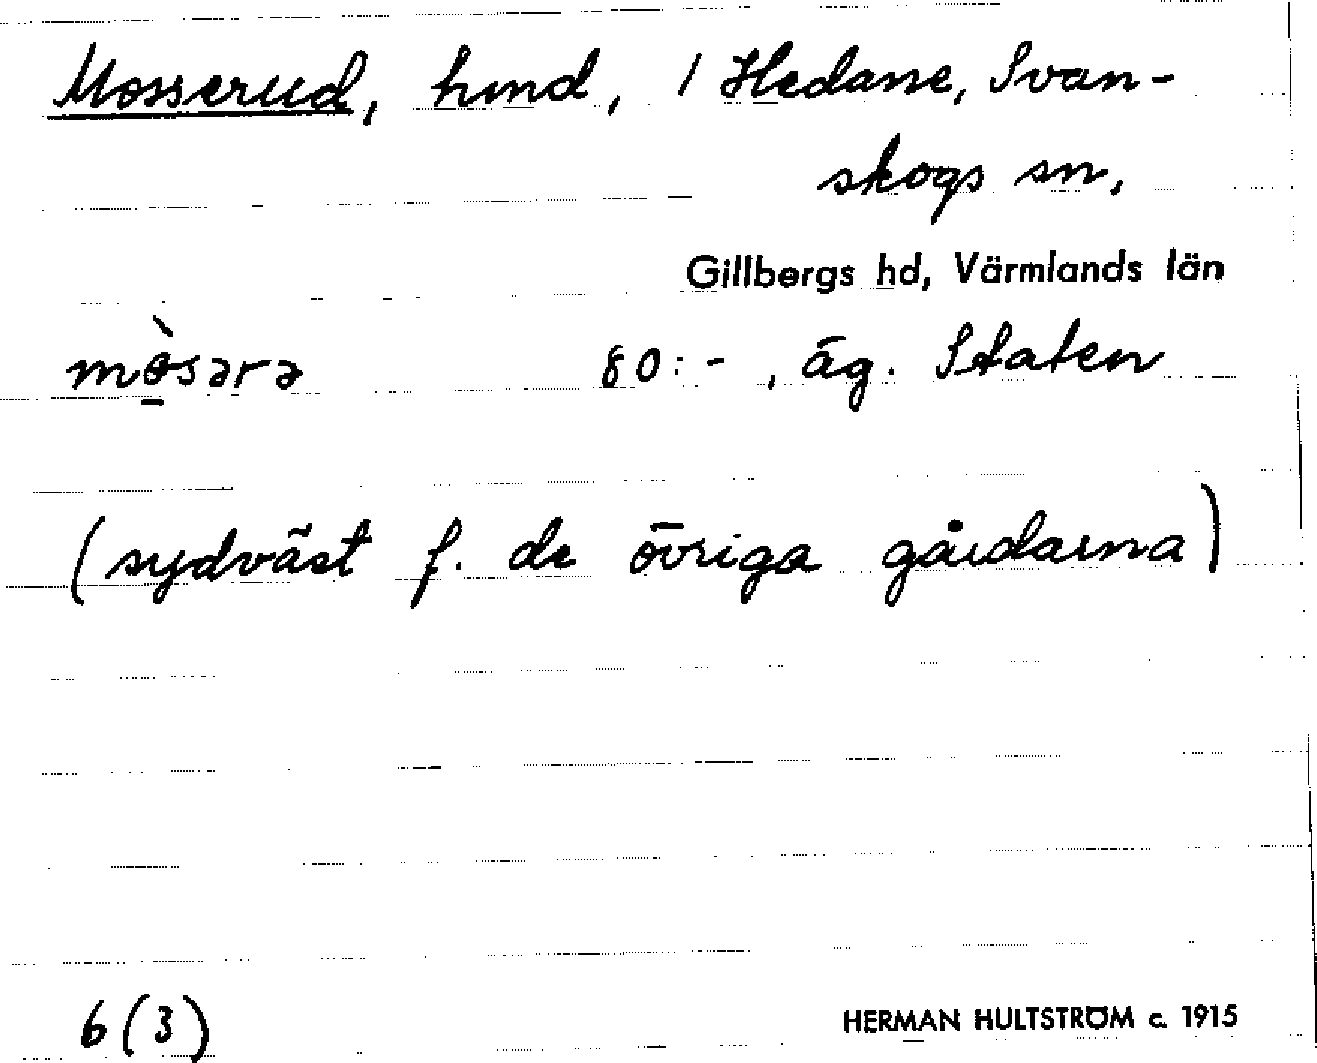 Mosserud, hmd, 1 Hedane, Svan-
skogs sn,
Gillbergs hd, Värmlands län
mòsərə 80:-, äg. Staten
(sydväst f. de övriga gårdarna)
6(3) HERMAN HULTSTRÖM c. 1915